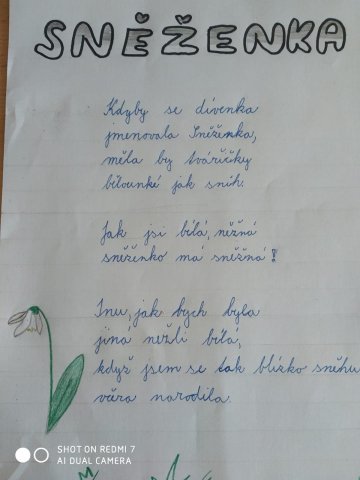 SNĚŽENKA
Kdyby se dívenka
jmenovala Sněženka,
měla by tvářičky
bělounké jak sníh.
Jak jsi bílá, něžná
sněženko má sněžná!
Inu, jak bych byla
jina nežli bílá,
když jsem se tak blízko sněhu
včera narodila.
SHOT ON REDMI 7
AI DUAL CAMERA